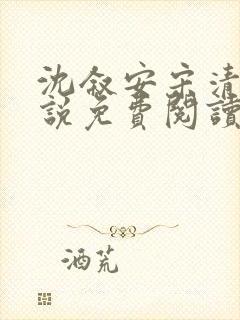 沈叙安宋清
說免費閱讀
酒荒